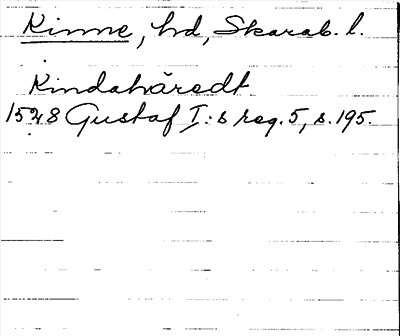 Kinne, hd, Skarab. l.
Kindahäredt
1528 Gustaf I:s reg. 5, s. 195.